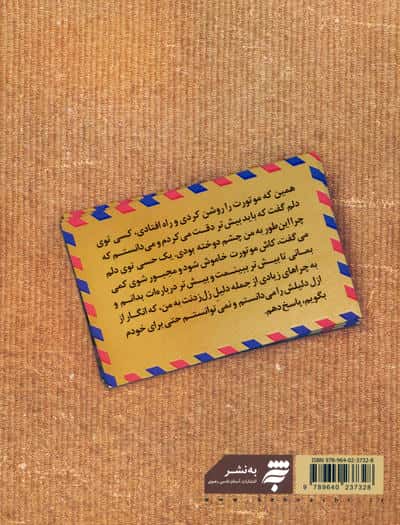 همین که موتورت را روشن کردی و راه افتادی، کسی توی
دلم گفت که باید بیش‌تر دقت می‌کردم و می‌دانستم که
چرا این‌طور به من چشم دوخته بودی. یک حسی توی دلم
می‌گفت، کاش موتورت خاموش شود و مجبور شوی کمی
بمانی تا بیش‌تر ببینمت و بیش‌تر درباره‌ات بدانم و
به چراهای زیادی از جمله دلیل زل‌زدنت به من، که انگار از
ازل دلیلش را می‌دانستم و نمی‌توانستم حتی برای خودم
بگویم، پاسخ دهم.
به‌نشر
انتشارات آستان قدس رضوی
ISBN 978-964-02-3732-8
9 789640 237328